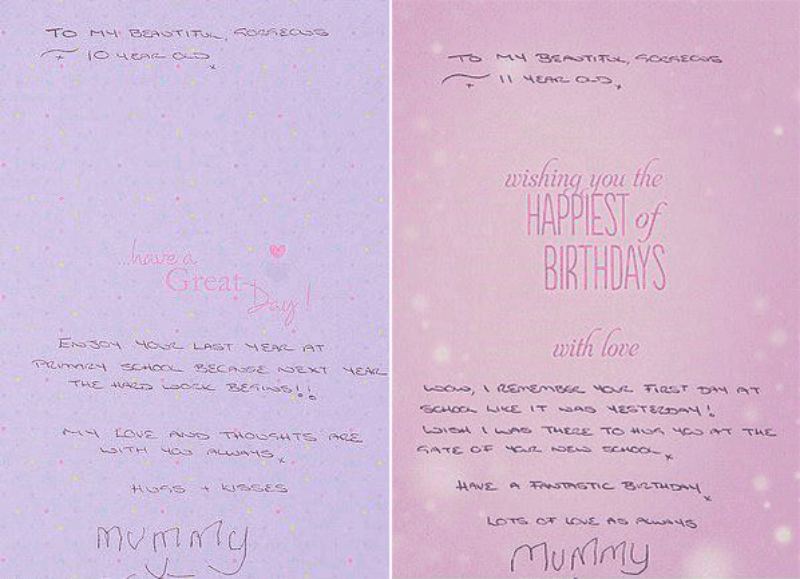 TO MY BEAUTIFUL, GORGEOUS
10 YEAR OLD x
...have a
Great
Day!
ENJOY YOUR LAST YEAR AT
PRIMARY SCHOOL BECAUSE NEXT YEAR
THE HARD WORK BEGINS!!
MY LOVE AND THOUGHTS ARE
WITH YOU ALWAYS x
HUGS + KISSES
MUMMY
TO MY BEAUTIFUL, GORGEOUS
11 YEAR OLD x
wishing you the
HAPPIEST of
BIRTHDAYS
with love
WOW, I REMEMBER YOUR FIRST DAY AT
SCHOOL LIKE IT WAS YESTERDAY!
WISH I WAS THERE TO HUG YOU AT THE
GATE OF YOUR NEW SCHOOL x
HAVE A FANTASTIC BIRTHDAY x
LOTS OF LOVE AS ALWAYS
MUMMY